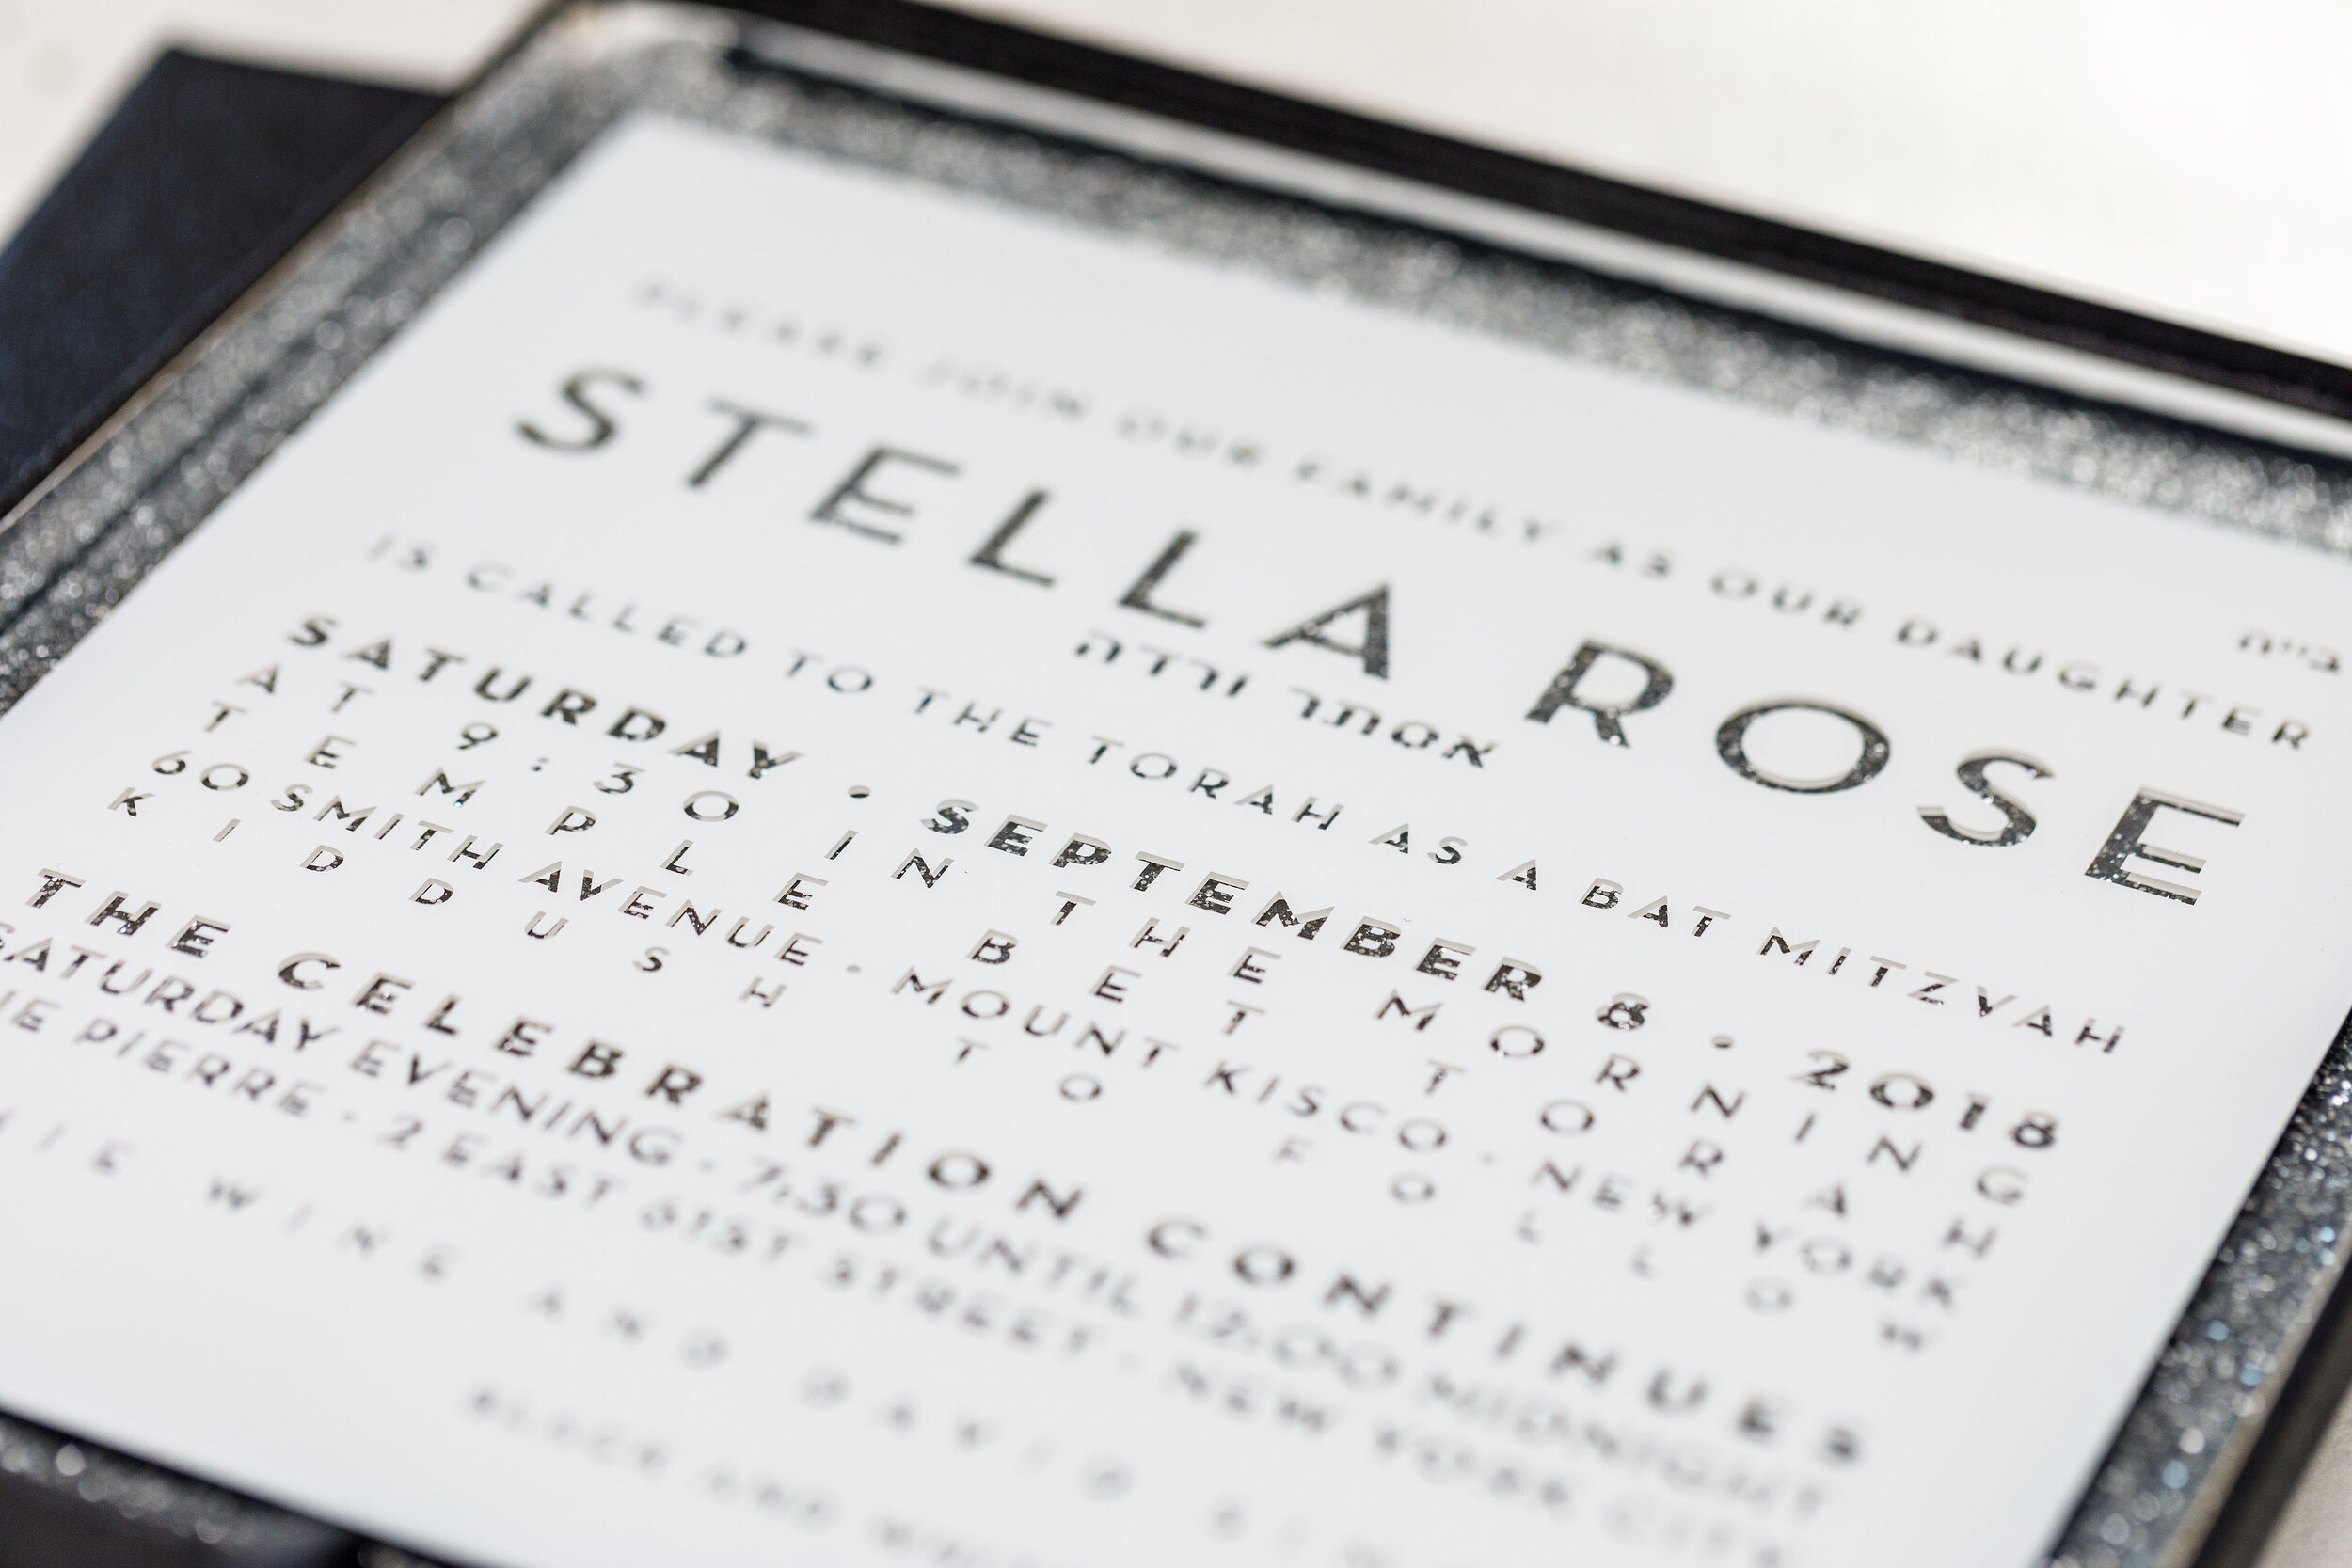 ב״ה
PLEASE JOIN OUR FAMILY AS OUR DAUGHTER
STELLA ROSE
אסתר ורדה
IS CALLED TO THE TORAH AS A BAT MITZVAH
SATURDAY • SEPTEMBER 8 • 2018
AT 9:30 IN THE MORNING
TEMPLE BET TORAH
60 SMITH AVENUE • MOUNT KISCO • NEW YORK
KIDDUSH TO FOLLOW
THE CELEBRATION CONTINUES
SATURDAY EVENING • 7:30 UNTIL 12:00 MIDNIGHT
PIERRE • 2 EAST 61ST STREET • NEW YORK CITY
WINE AND DAVID
BLACK AND